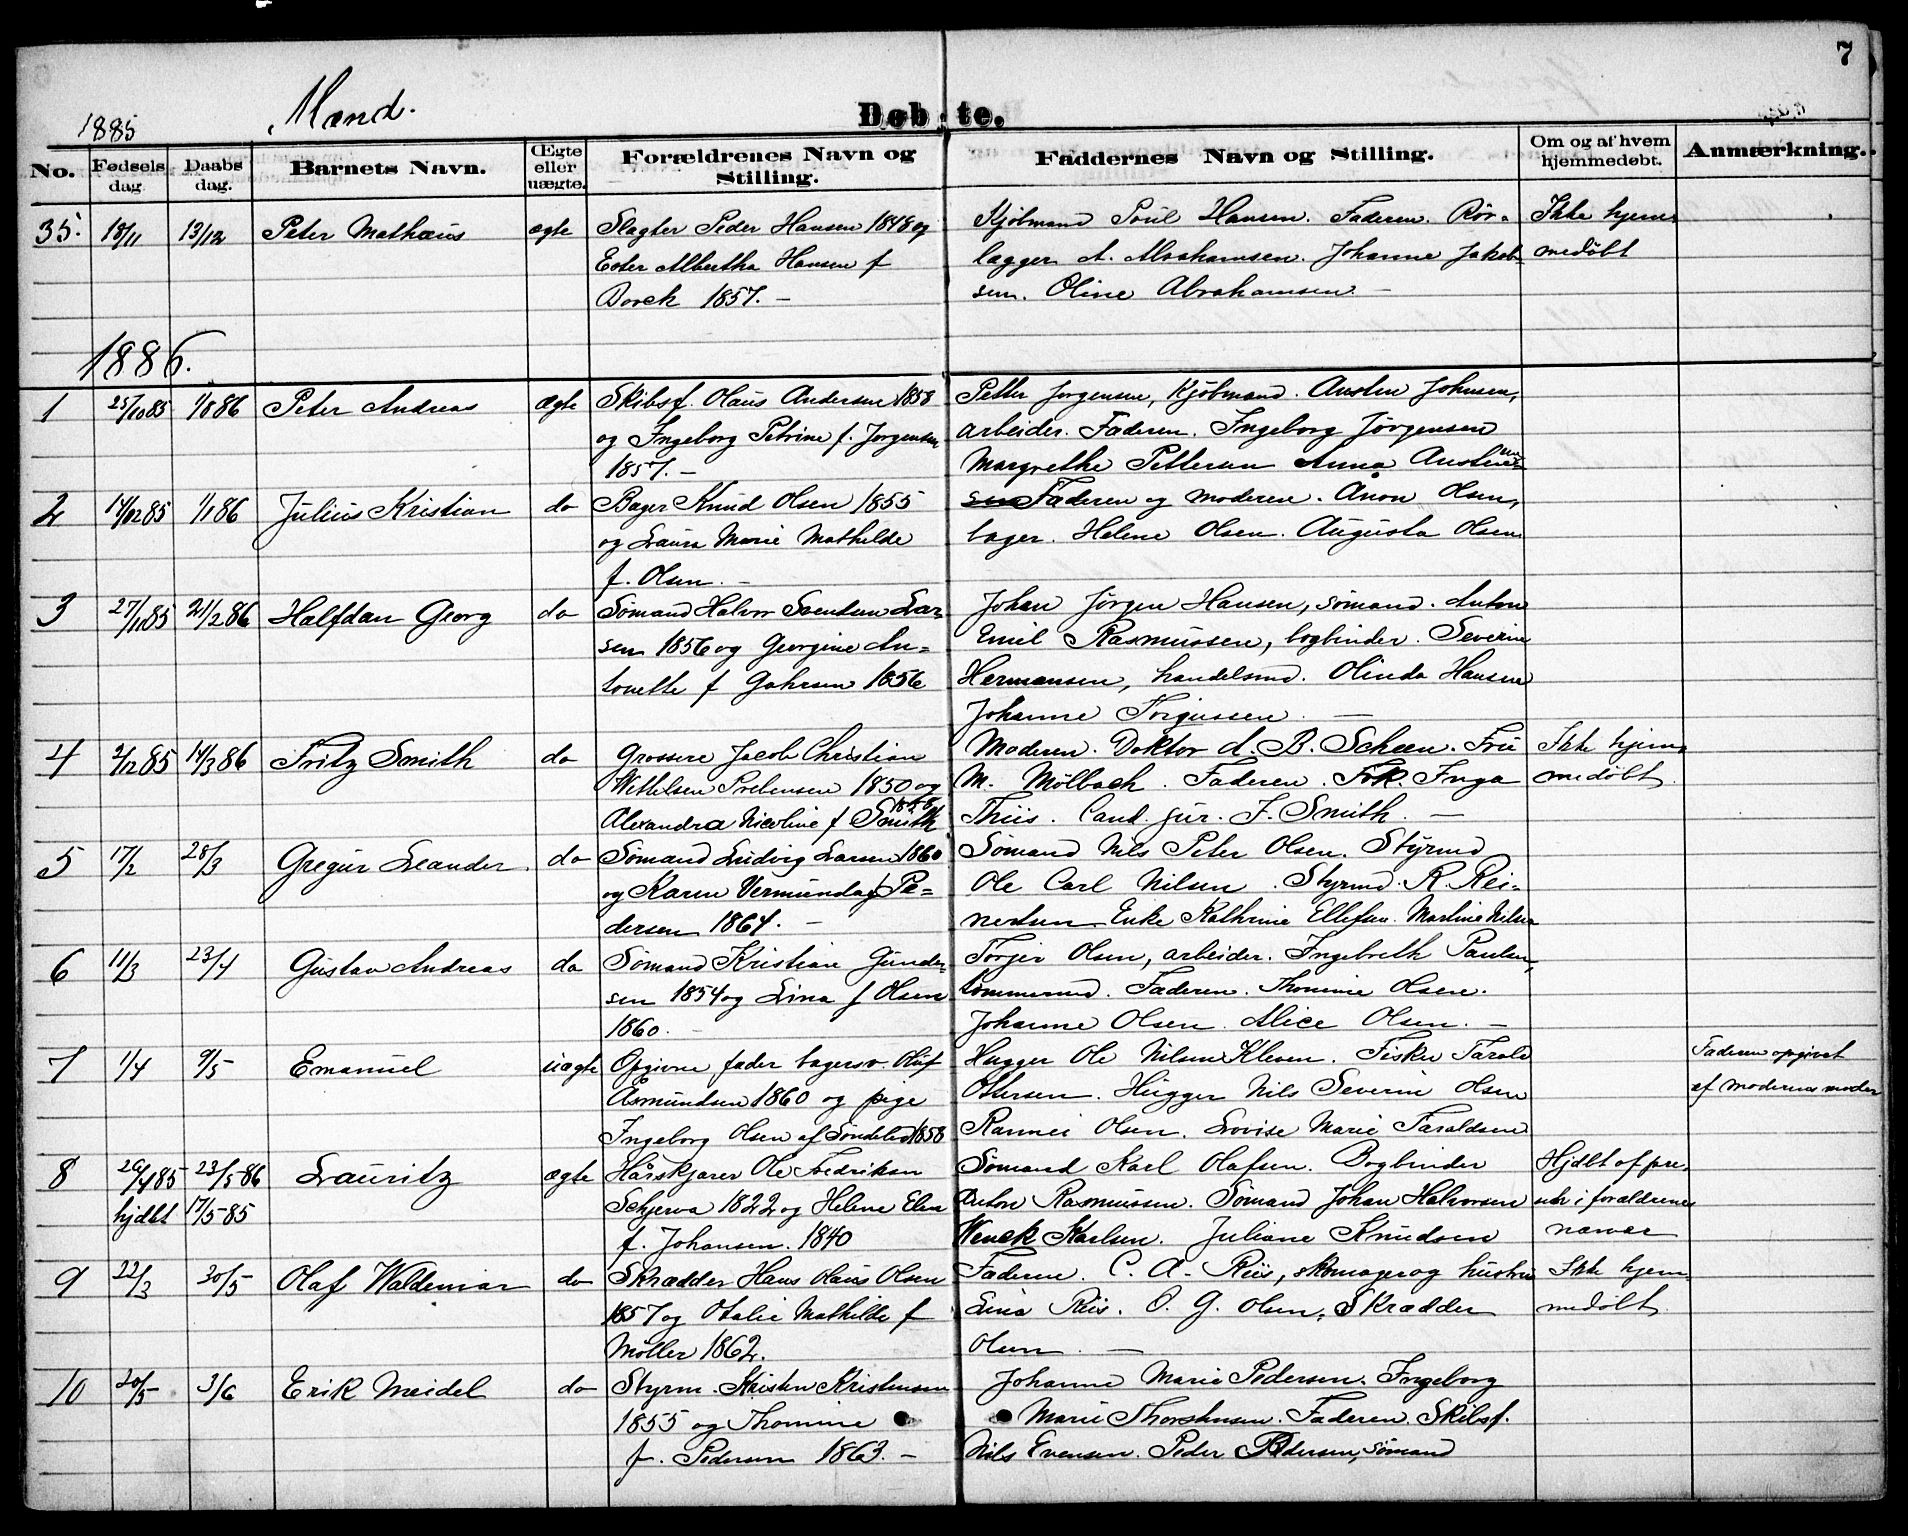 7
1885 Mænd.
Døbte.
No. Fødsels dag. Daabs dag. Barnets Navn. Œgte eller uægte. Forældrenes Navn og Stilling. Faddernes Navn og Stilling. Om og af hvem hjemmedøbt. Anmærkning.
35. 18/11 13/12 Peter Mathæus ægte Slagter Peder Hansen 1848 og Kjøbmand Poul Hansen. Faderen. Rør- Ikke hjem-
Ester Albertha Hansen f lægger A. Abrahamsen. Johanne Jakob- medøbt
Dorck 1857. – sen. Oline Abrahamsen –
1886.
1 25/10 85 1/1 86 Peter Andreas ægte Skibsf. Olaus Andersen 1858 Petter Jorgensen, Kjöbmand. Austen Johnsen,
og Ingeborg Petrine f. Jorgensen arbeider. Faderen. Ingeborg Jørgensen
1857. – Margrethe Pettersen Anna Austen
2 14/12 85 1/1 86 Julius Kristian do Bager Knud Olsen 1855 sen Faderen og moderen. Anon Olsen,
og Laura Marie Mathilde bager. Helene Olsen. Augusta Olsen
f. Olsen. –
3 27/11 85 21/2 86 Halfdan Georg do Sømand Halvor Svendsen Lar- Johan Jørgen Hansen, sømand. Anton
sen 1856 og Georgine An- Emil Rasmussen, bogbinder. Severine
tonette f 1856 Hermansen, handelsmd. Olinda Hansen
Johanne Torgussen –
4 2/12 85 14/3 86 Fritz Smith do Grosserer Jacob Christian Moderen. Doktor A. B. Scheen. Fru Ikke hjem-
Wettelsen Prebensen 1850 og M. Mølbach. Faderen Frk. Inga medøbt
Alexandra Nicoline f Smith 1858 Thiis. Cand. jur. F. Smith. –
5 17/2 28/3 Gregur Leander. do Sømand Ludvig Larsen 1860 Sømand Nils Peter Olsen. Styrmd
og Karen Vermunda f Pe- Ole Carl Nilsen. Styrmd. R. Rei-
dersen 1864. – nertsen Enke Kathrine Ellefsen. Martine Nilsen
6 11/3 23/4 Gustav Andreas do Sømand Kristian Gunder- Torjer Olsen, arbeider. Ingebreth Paulsen,
sen 1854 og Lina f Olsen tømmermd. Faderen. Thomine Olsen.
1860. – Johanne Olsen. Alice Olsen. –
7 1/4 9/5 Emanuel uægte Opgivne fader bagersv. Oluf Hugger Ole Nilsen Kleven. Fisker Tarald Faderen opgivet
Asmundsen 1860 og pige Ottersen. Hugger Nils Severin Olsen af moderens moder
Ingeborg Olsen af Søndeled 1858 Rannei Olsen. Lovise Marie Taraldsen
8 26/4 85 23/5-86 Lauritz ægte Hårskjærer Ole Fredriksen Sømand Karl Olafsen. Bogbinder Hjdbt af præ-
hjdbt 17/5-85 Schjerva 1822 og Helene Elen Anton Rasmussen. Sømand Johan Halvorsen i forældrenes
f. Johansen. 1840 Wenck Karlsen. Juliane Knudsen nærvær
9 22/3 30/5 Olaf Waldemar do Skrædder Hans Olaus Olsen Faderen. C. A. Riis, skomager og hustru Ikke hjem-
1857 og Otalie Mathilde f Lina Riis. O. G. Olsen, Skrædder medøbt
Møller 1862. Olsen. –
10 20/5 3/6 Erik Meidel do Styrm. Kristen Kristensen Johanne Marie Pedersen. Ingeborg
1855 og Thomine Marie Thorstensen. Faderen. Skibsf.
f. Pedersen 1863. – Nils Evensen. Peder Pedersen, sømand